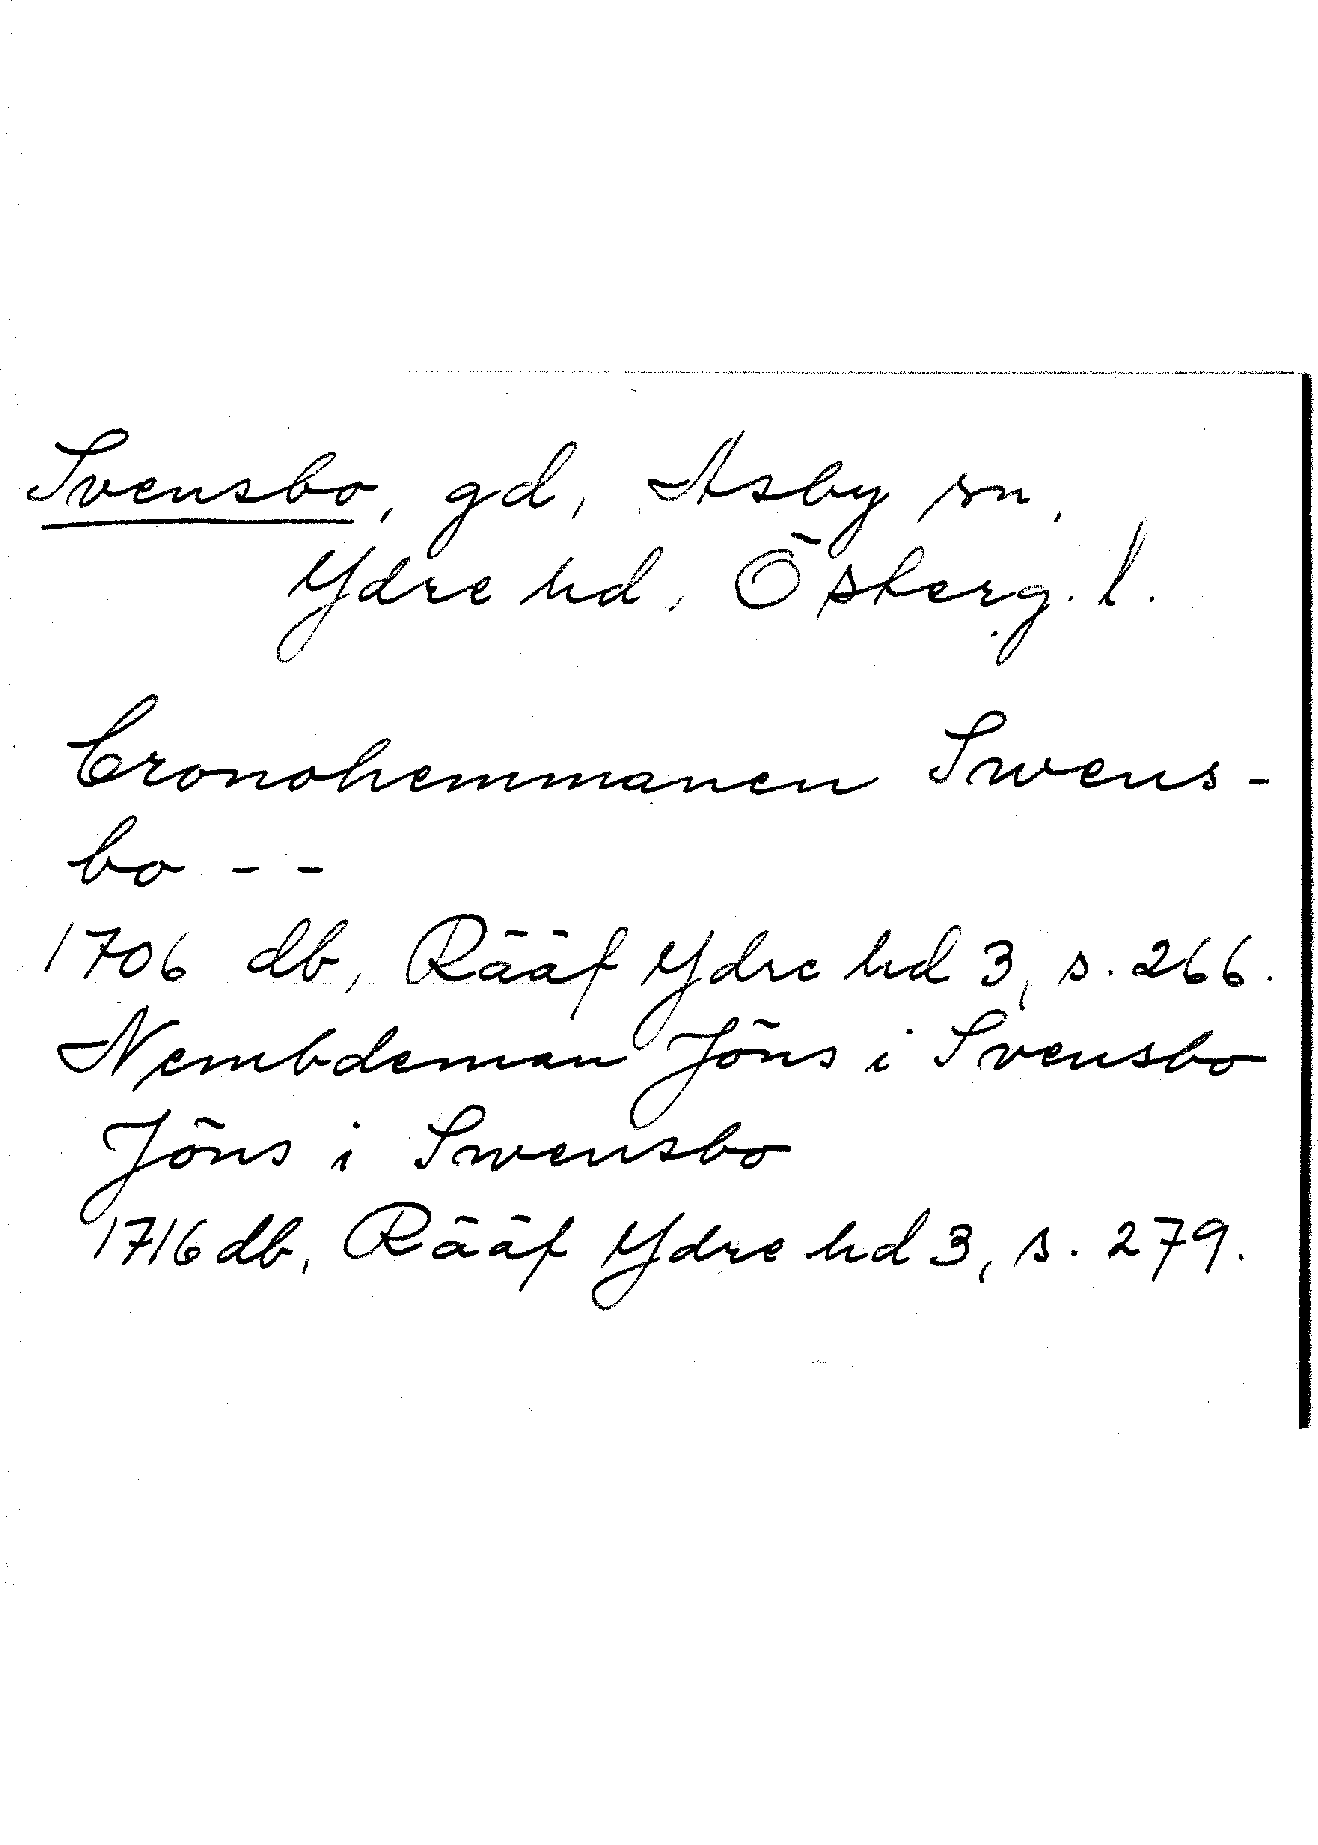 Svensbo, gd, Asby sn,
Ydre hd, Österg. l.
Cronohemmanen Swens-
bo - -
1706 db, Rääf Ydre hd 3, s. 266.
Nembdeman Jöns i Svensbo
Jöns i Swensbo
1716 db, Rääf Ydre hd 3, s. 279.